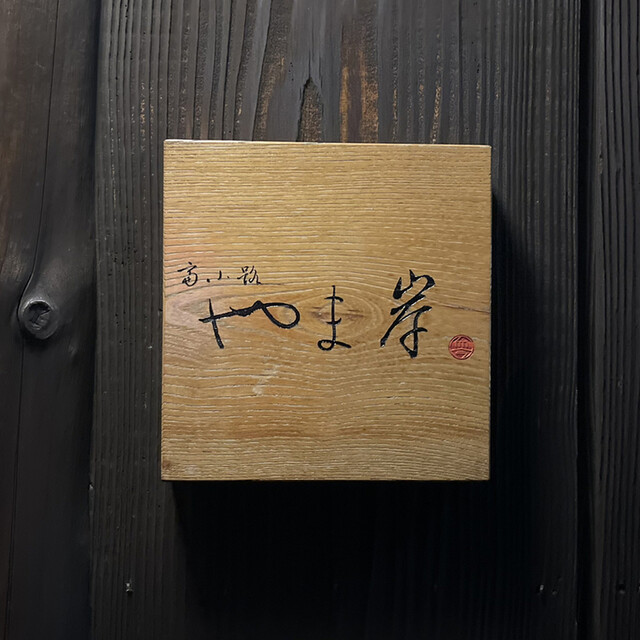 富小路
やま岸